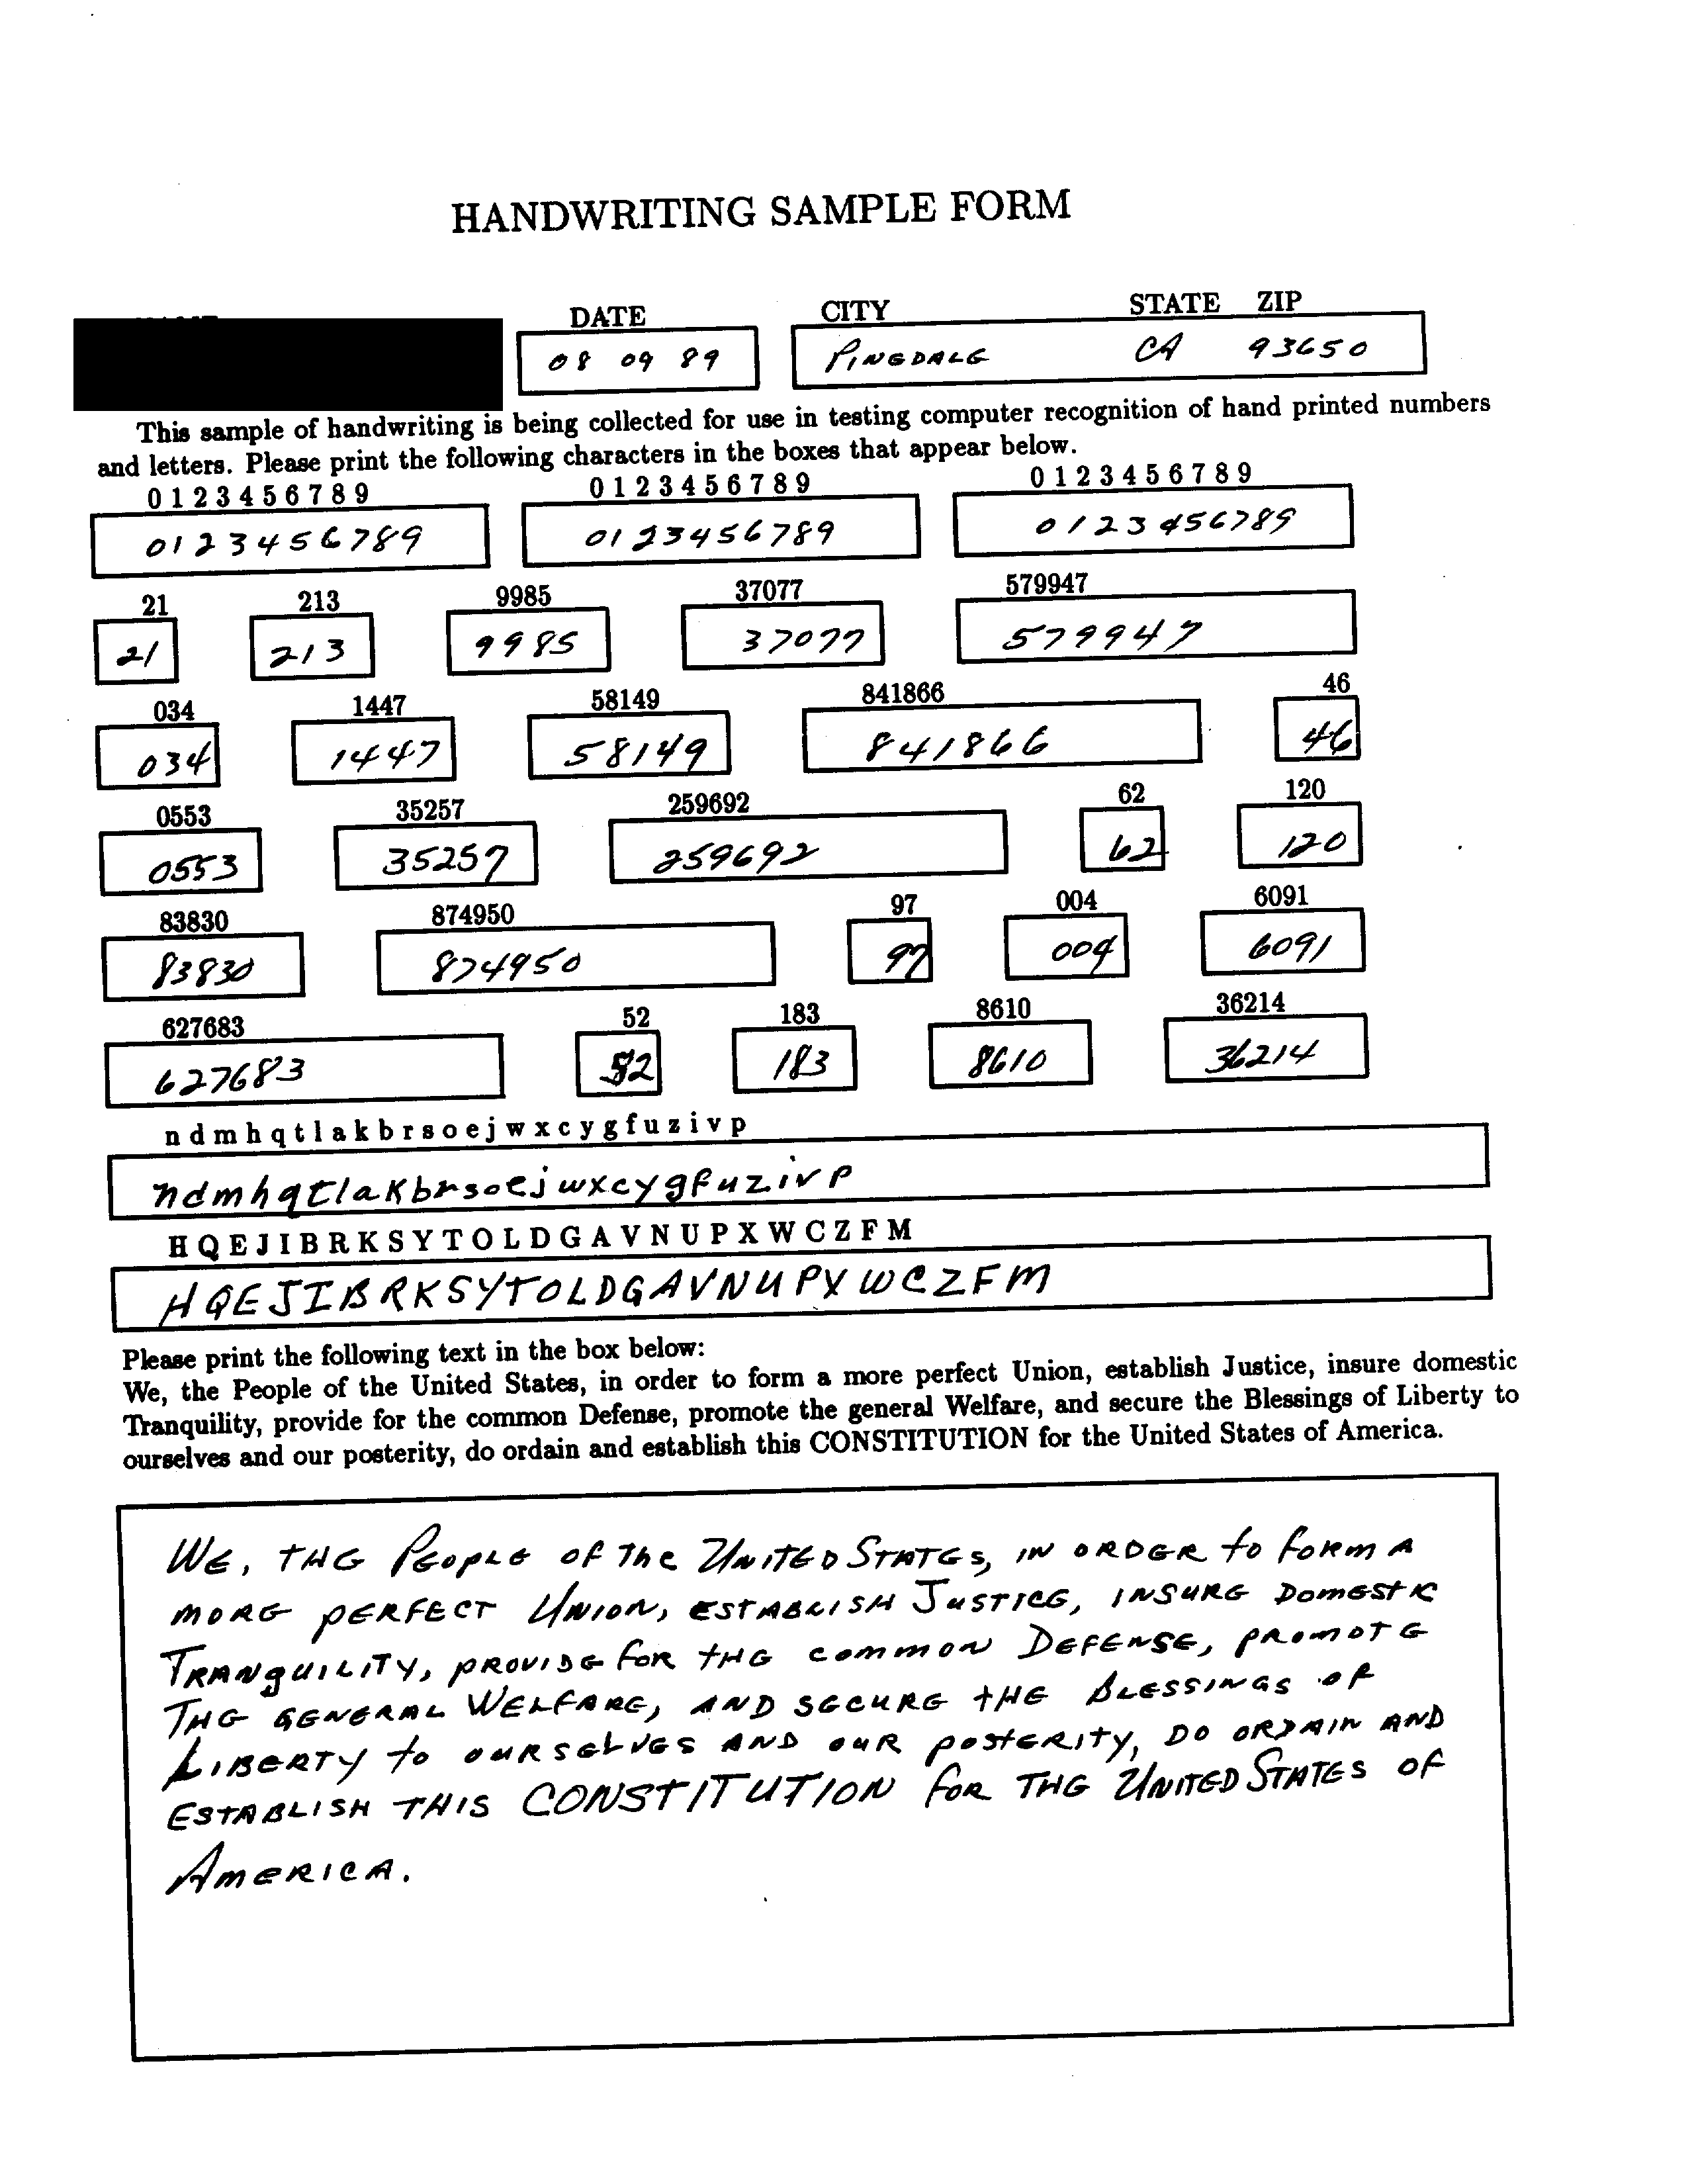 HANDWRITING SAMPLE FORM
DATE CITY STATE ZIP
08 09 89 PINEDALE CA 93650
This sample of handwriting is being collected for use in testing computer recognition of hand printed numbers
and letters. Please print the following characters in the boxes that appear below.
0 1 2 3 4 5 6 7 8 9 0 1 2 3 4 5 6 7 8 9 0 1 2 3 4 5 6 7 8 9
0123456789 0123456789 0123456789
21 213 9985 37077 579947
21 213 9985 37077 579947
034 1447 58149 841866 46
034 1447 58149 841866 46
0553 35257 259692 62 120
0553 35257 259692 62 120
83830 874950 97 004 6091
83830 874950 97 004 6091
627683 52 183 8610 36214
627683 52 183 8610 36214
n d m h q t l a k b r s o e j w x c y g f u z i v p
ndmhqtlakbrsoejwxcygfuzivp
H Q E J I B R K S Y T O L D G A V N U P X W C Z F M
HQEJIBRKSYTOLDGAVNUPXWCZFM
Please print the following text in the box below:
We, the People of the United States, in order to form a more perfect Union, establish Justice, insure domestic
Tranquility, provide for the common Defense, promote the general Welfare, and secure the Blessings of Liberty to
ourselves and our posterity, do ordain and establish this CONSTITUTION for the United States of America.
WE, THE PEOPLE OF The UNITED STATES, IN ORDER to FORM A
MORE PERFECT UNION, ESTABLISH JUSTICE, INSURE DOMESTIC
TRANQUILITY, PROVIDE FOR tHE COMMON DEFENSE, PROMOTE
THE GENERAL WELFARE, AND SECURE tHE BLESSINGS OF
LIBERTY to OURSELVES AND OUR POSTERITY, DO ORDAIN AND
ESTABLISH THIS CONSTITUTION FOR THE UNITED STATES OF
AMERICA.